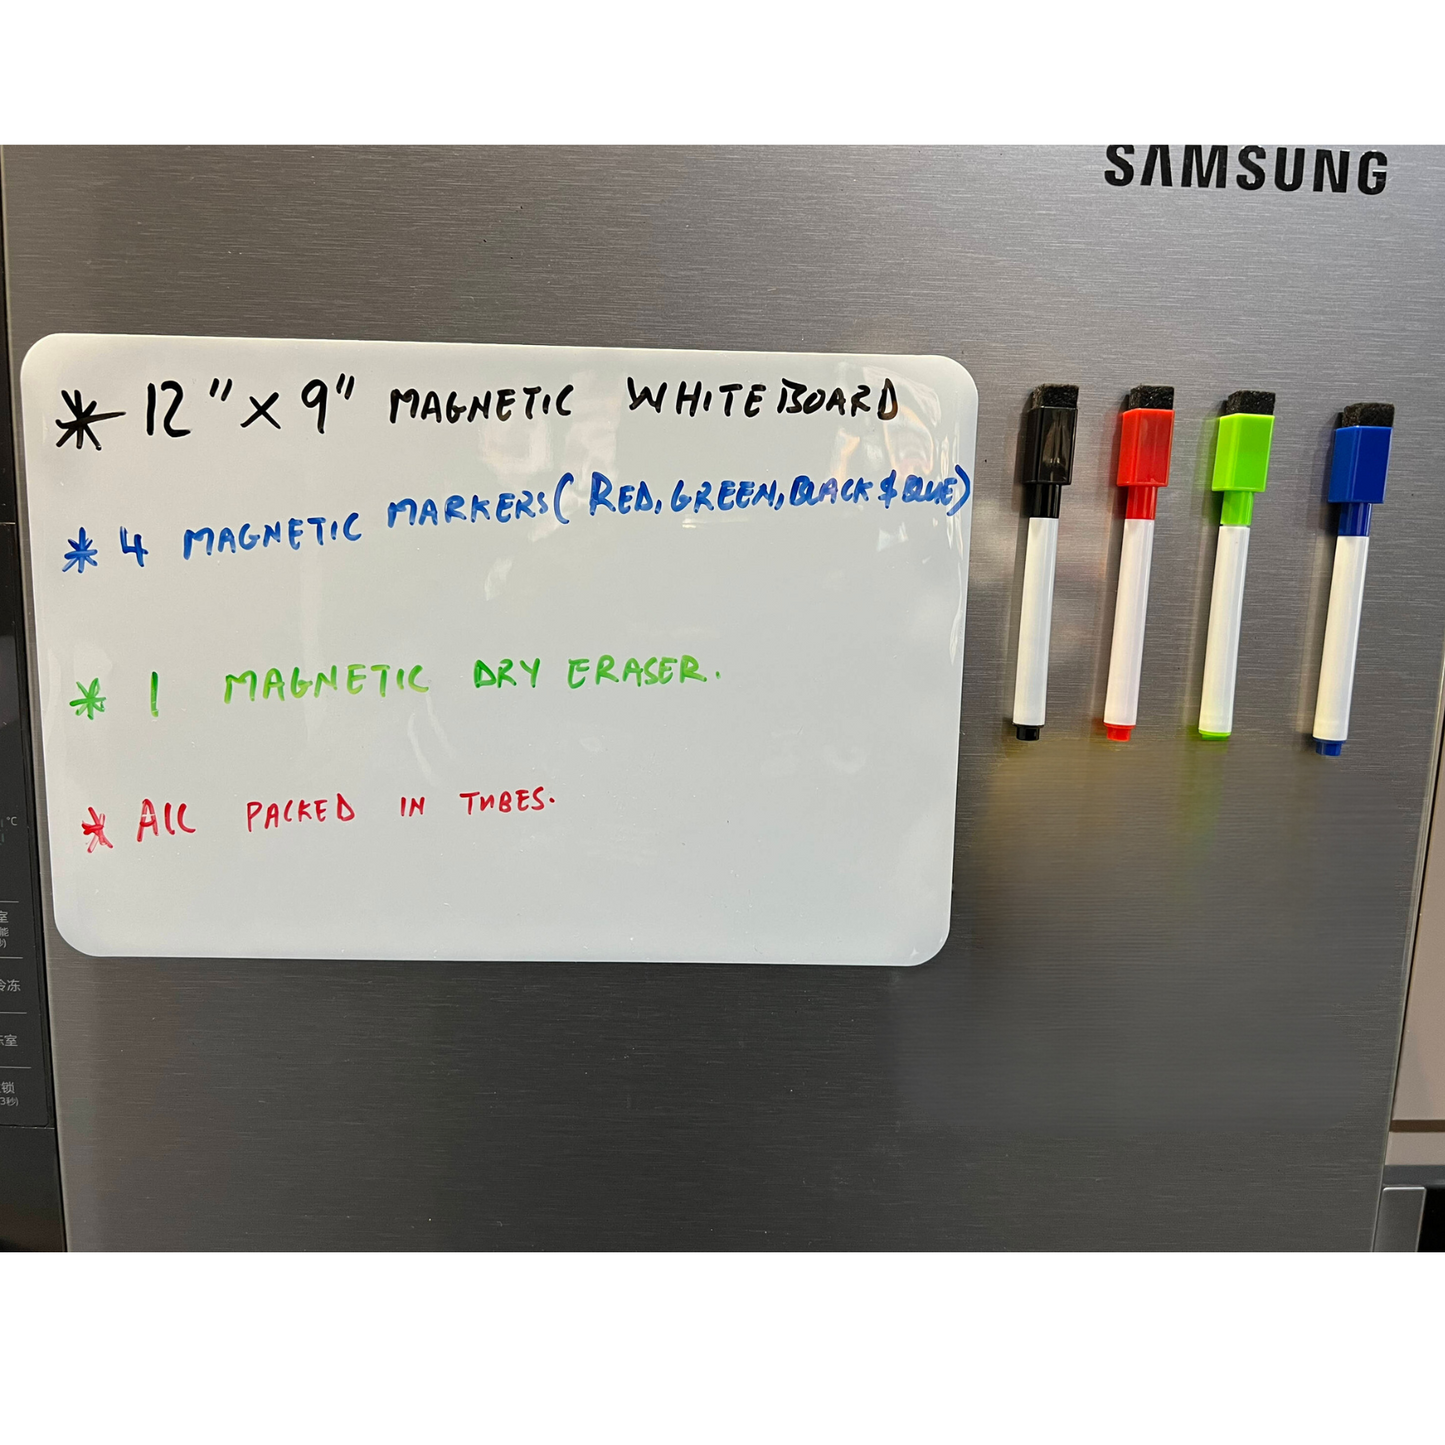 SAMSUNG
* 12" x 9" MAGNETIC WHITEBOARD
* 4 MAGNETIC MARKERS (RED, GREEN, BLACK & BLUE)
* 1 MAGNETIC DRY ERASER.
* All PACKED IN TUBES.
°C
室
能
冷冻
室
锁
3秒)